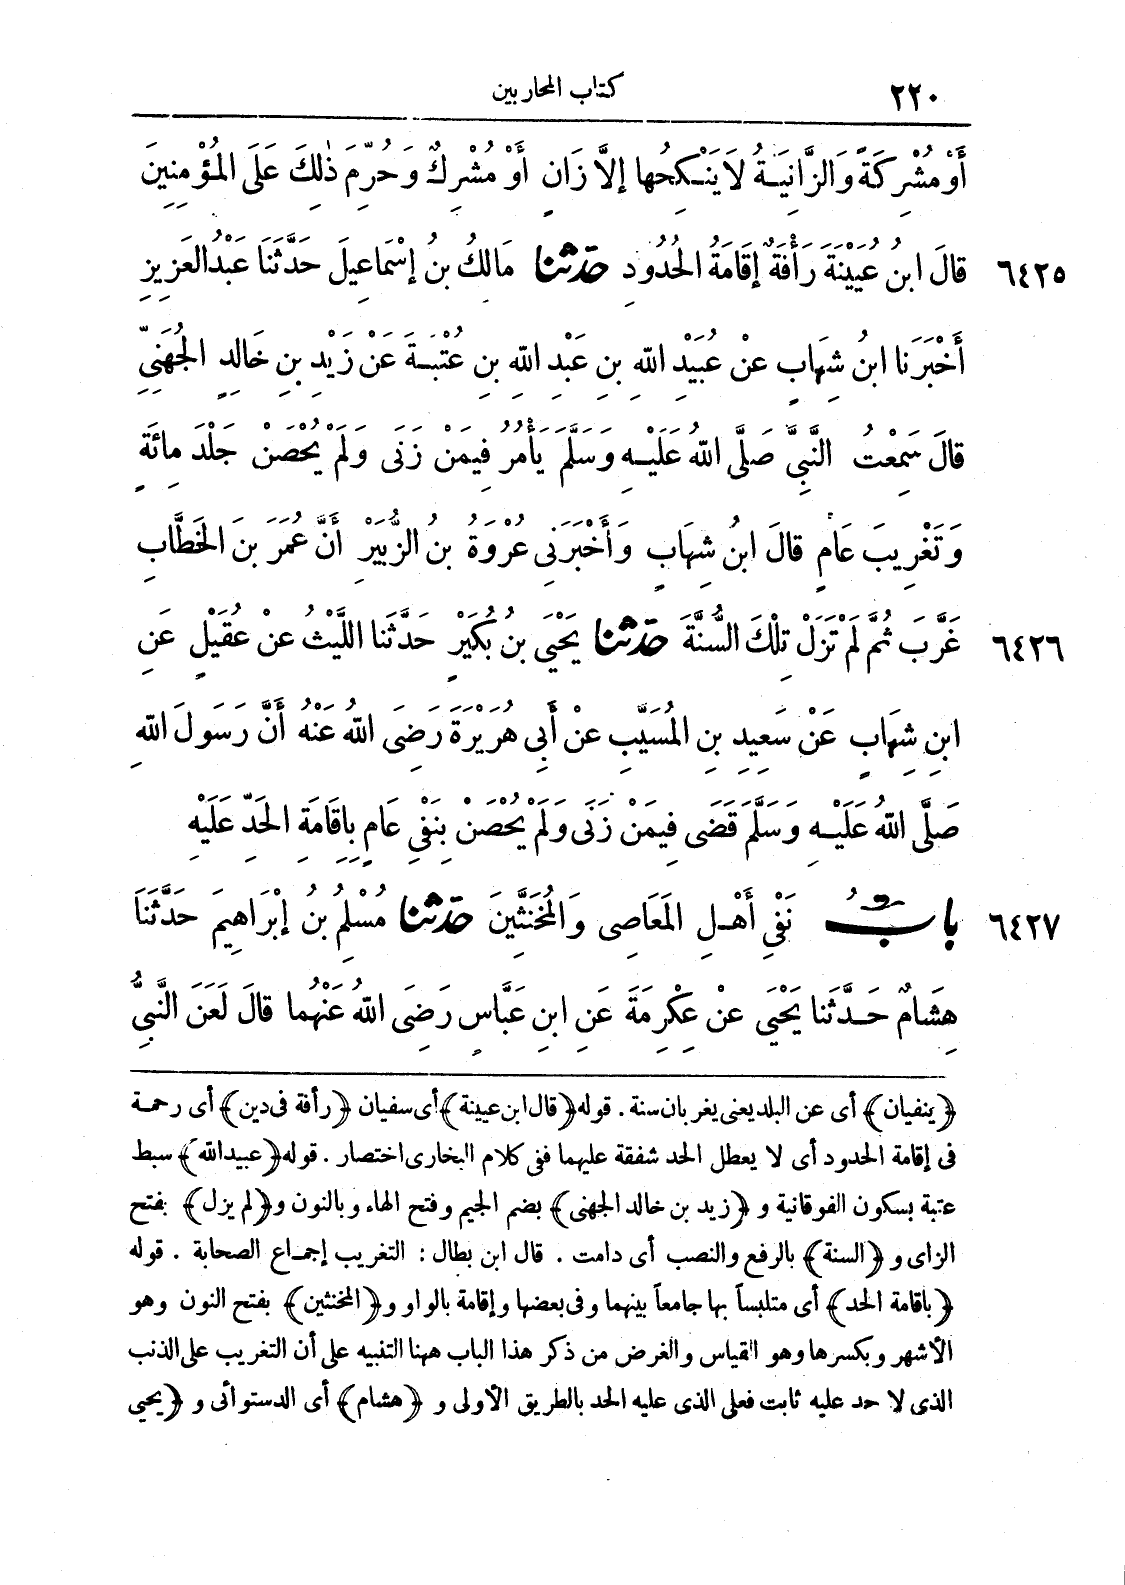 ٢٢٠
كتاب المحاربين
أَوْ مُشْرِكَةً وَالزَّانِيَةُ لَا يَنْكِحُهَا إلَّا زَانٍ أَوْ مُشْرِكٌ وَحُرِّمَ ذٰلِكَ عَلَى الْمُؤْمِنِينَ
٦٤٢٥ قَالَ ابنُ عُيَيْنَةَ رَأْفَةٌ إقَامَةُ الْحُدُودِ حدثنا مَالِكُ بنُ إسْمَاعِيلَ حَدَّثَنَا عَبْدُ الْعَزِيزِ
أَخْبَرَنَا ابنُ شِهَابٍ عَنْ عُبَيْدِ اللهِ بنِ عَبْدِ اللهِ بنِ عُتْبَةَ عَنْ زَيْدِ بنِ خَالِدٍ الْجُهَنِيِّ
قَالَ سَمِعْتُ النَّبِيَّ صَلَّى اللهُ عَلَيْهِ وَسَلَّمَ يَأْمُرُ فِيمَنْ زَنَى وَلَمْ يُحْصِنْ جَلْدَ مِائَةٍ
وَتَغْرِيبَ عَامٍ قَالَ ابنُ شِهَابٍ وَأَخْبَرَنِى عُرْوَةُ بنُ الزُّبَيْرِ أَنَّ عُمَرَ بنَ الْخَطَّابِ
٦٤٢٦ غَرَّبَ ثُمَّ لَمْ تَزَلْ تِلْكَ السُّنَّةَ حدثنا يَحْيَى بنُ بُكَيْرٍ حَدَّثَنَا اللَّيْثُ عَنْ عُقَيْلٍ عَنِ
ابنِ شِهَابٍ عَنْ سَعِيدِ بنِ الْمُسَيَّبِ عَنْ أَبِى هُرَيْرَةَ رَضِىَ اللهُ عَنْهُ أَنَّ رَسُولَ اللهِ
صَلَّى اللهُ عَلَيْهِ وَسَلَّمَ قَضَى فِيمَنْ زَنَى وَلَمْ يُحْصِنْ بِنَفْىِ عَامٍ بِإِقَامَةِ الْحَدِّ عَلَيْهِ
٦٤٢٧ بابُ نَفْىِ أَهْلِ الْمَعَاصِى وَالْمُخَنَّثِينَ حدثنا مُسْلِمُ بنُ إبْرَاهِيمَ حَدَّثَنَا
هِشَامٌ حَدَّثَنَا يَحْيَى عَنْ عِكْرِمَةَ عَنِ ابنِ عَبَّاسٍ رَضِىَ اللهُ عَنْهُمَا قَالَ لَعَنَ النَّبِيُّ
﴿ينفيان﴾ أى عن البلد يعنى يغربان سنة . قوله ﴿قال ابن عيينة﴾ أى سفيان ﴿رأفة فى دين﴾ أى رحمة
فى إقامة الحدود أى لا يعطل الحد شفقة عليهما ففى كلام البخارى اختصار . قوله ﴿عبيد الله﴾ سبط
عتبة بسكون الفوقانية و ﴿زيد بن خالد الجهنى﴾ بضم الجيم وفتح الهاء وبالنون و﴿لم يزل﴾ بفتح
الزاى و ﴿السنة﴾ بالرفع والنصب أى دامت . قال ابن بطال : التغريب إجماع الصحابة . قوله
﴿باقامة الحد﴾ أى متلبساً بها جامعاً بينهما وفى بعضها وإقامة بالواو و ﴿المخنثين﴾ بفتح النون وهو
الأشهر وبكسرها وهو القياس والغرض من ذكر هذا الباب ههنا التنبيه على أن التغريب على الذنب
الذى لا حد عليه ثابت فعلى الذى عليه الحد بالطريق الأولى و ﴿هشام﴾ أى الدستوائى و ﴿يحيى